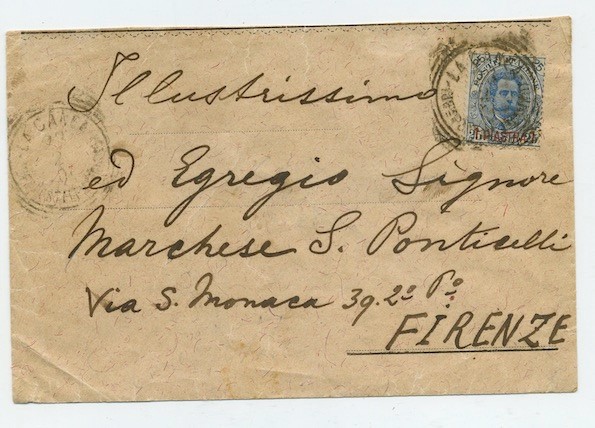 Illustrissimo
ed Egregio Signore
Marchese S. Ponticelli
Via S. Monaca 39. 2º Pº
FIRENZE
LA CANEA
LA
1 PIASTRA 1